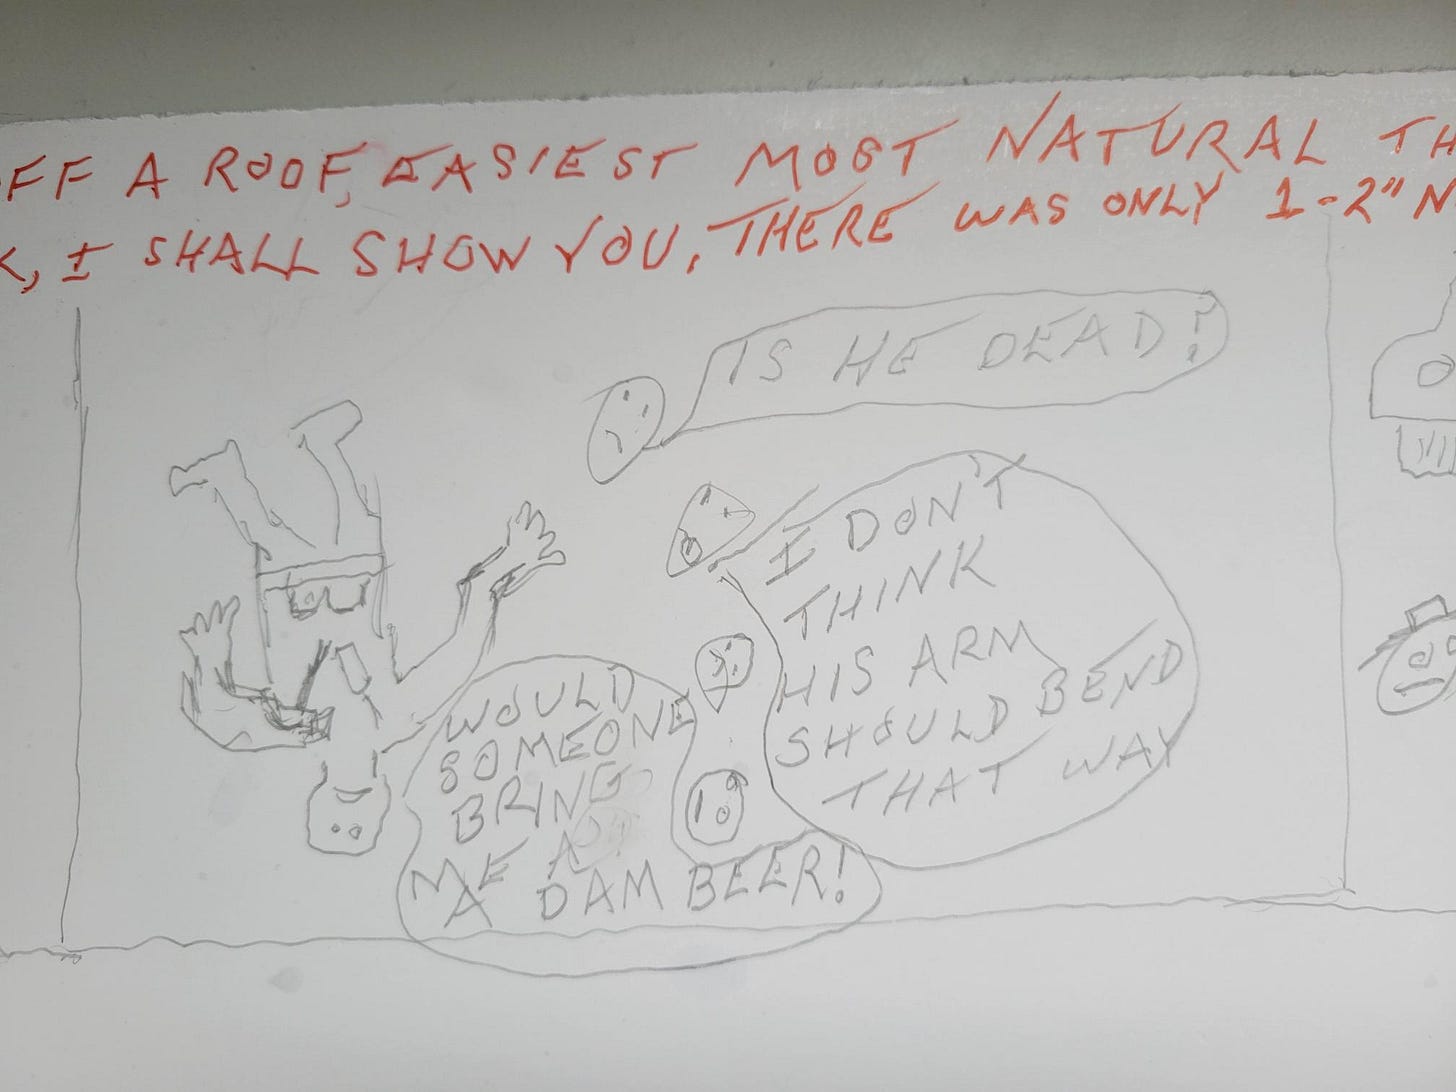 FF A ROOF, EASIEST MOST NATURAL TH
, I SHALL SHOW YOU, THERE WAS ONLY 1-2" N
IS HE DEAD!
I DON'T
THINK
HIS ARM
SHOULD BEND
THAT WAY
WOULD
SOMEONE
BRING
ME A
A DAM BEER!